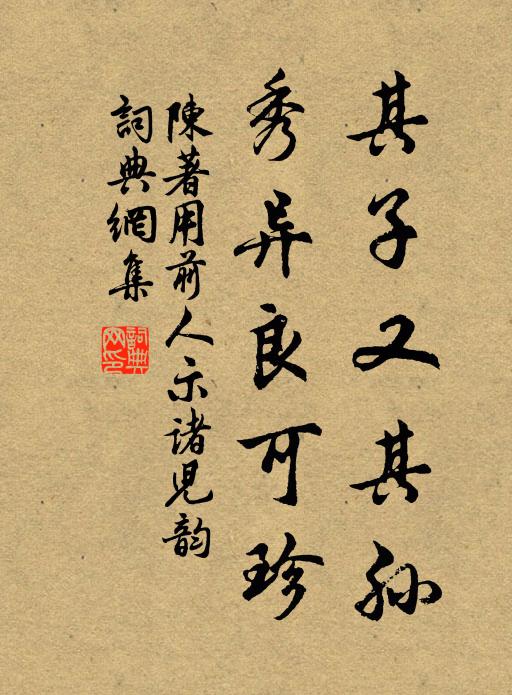 其子又其孙
秀异良可珍
陳著用前人示諸児韵
詞典網集
詞典网印